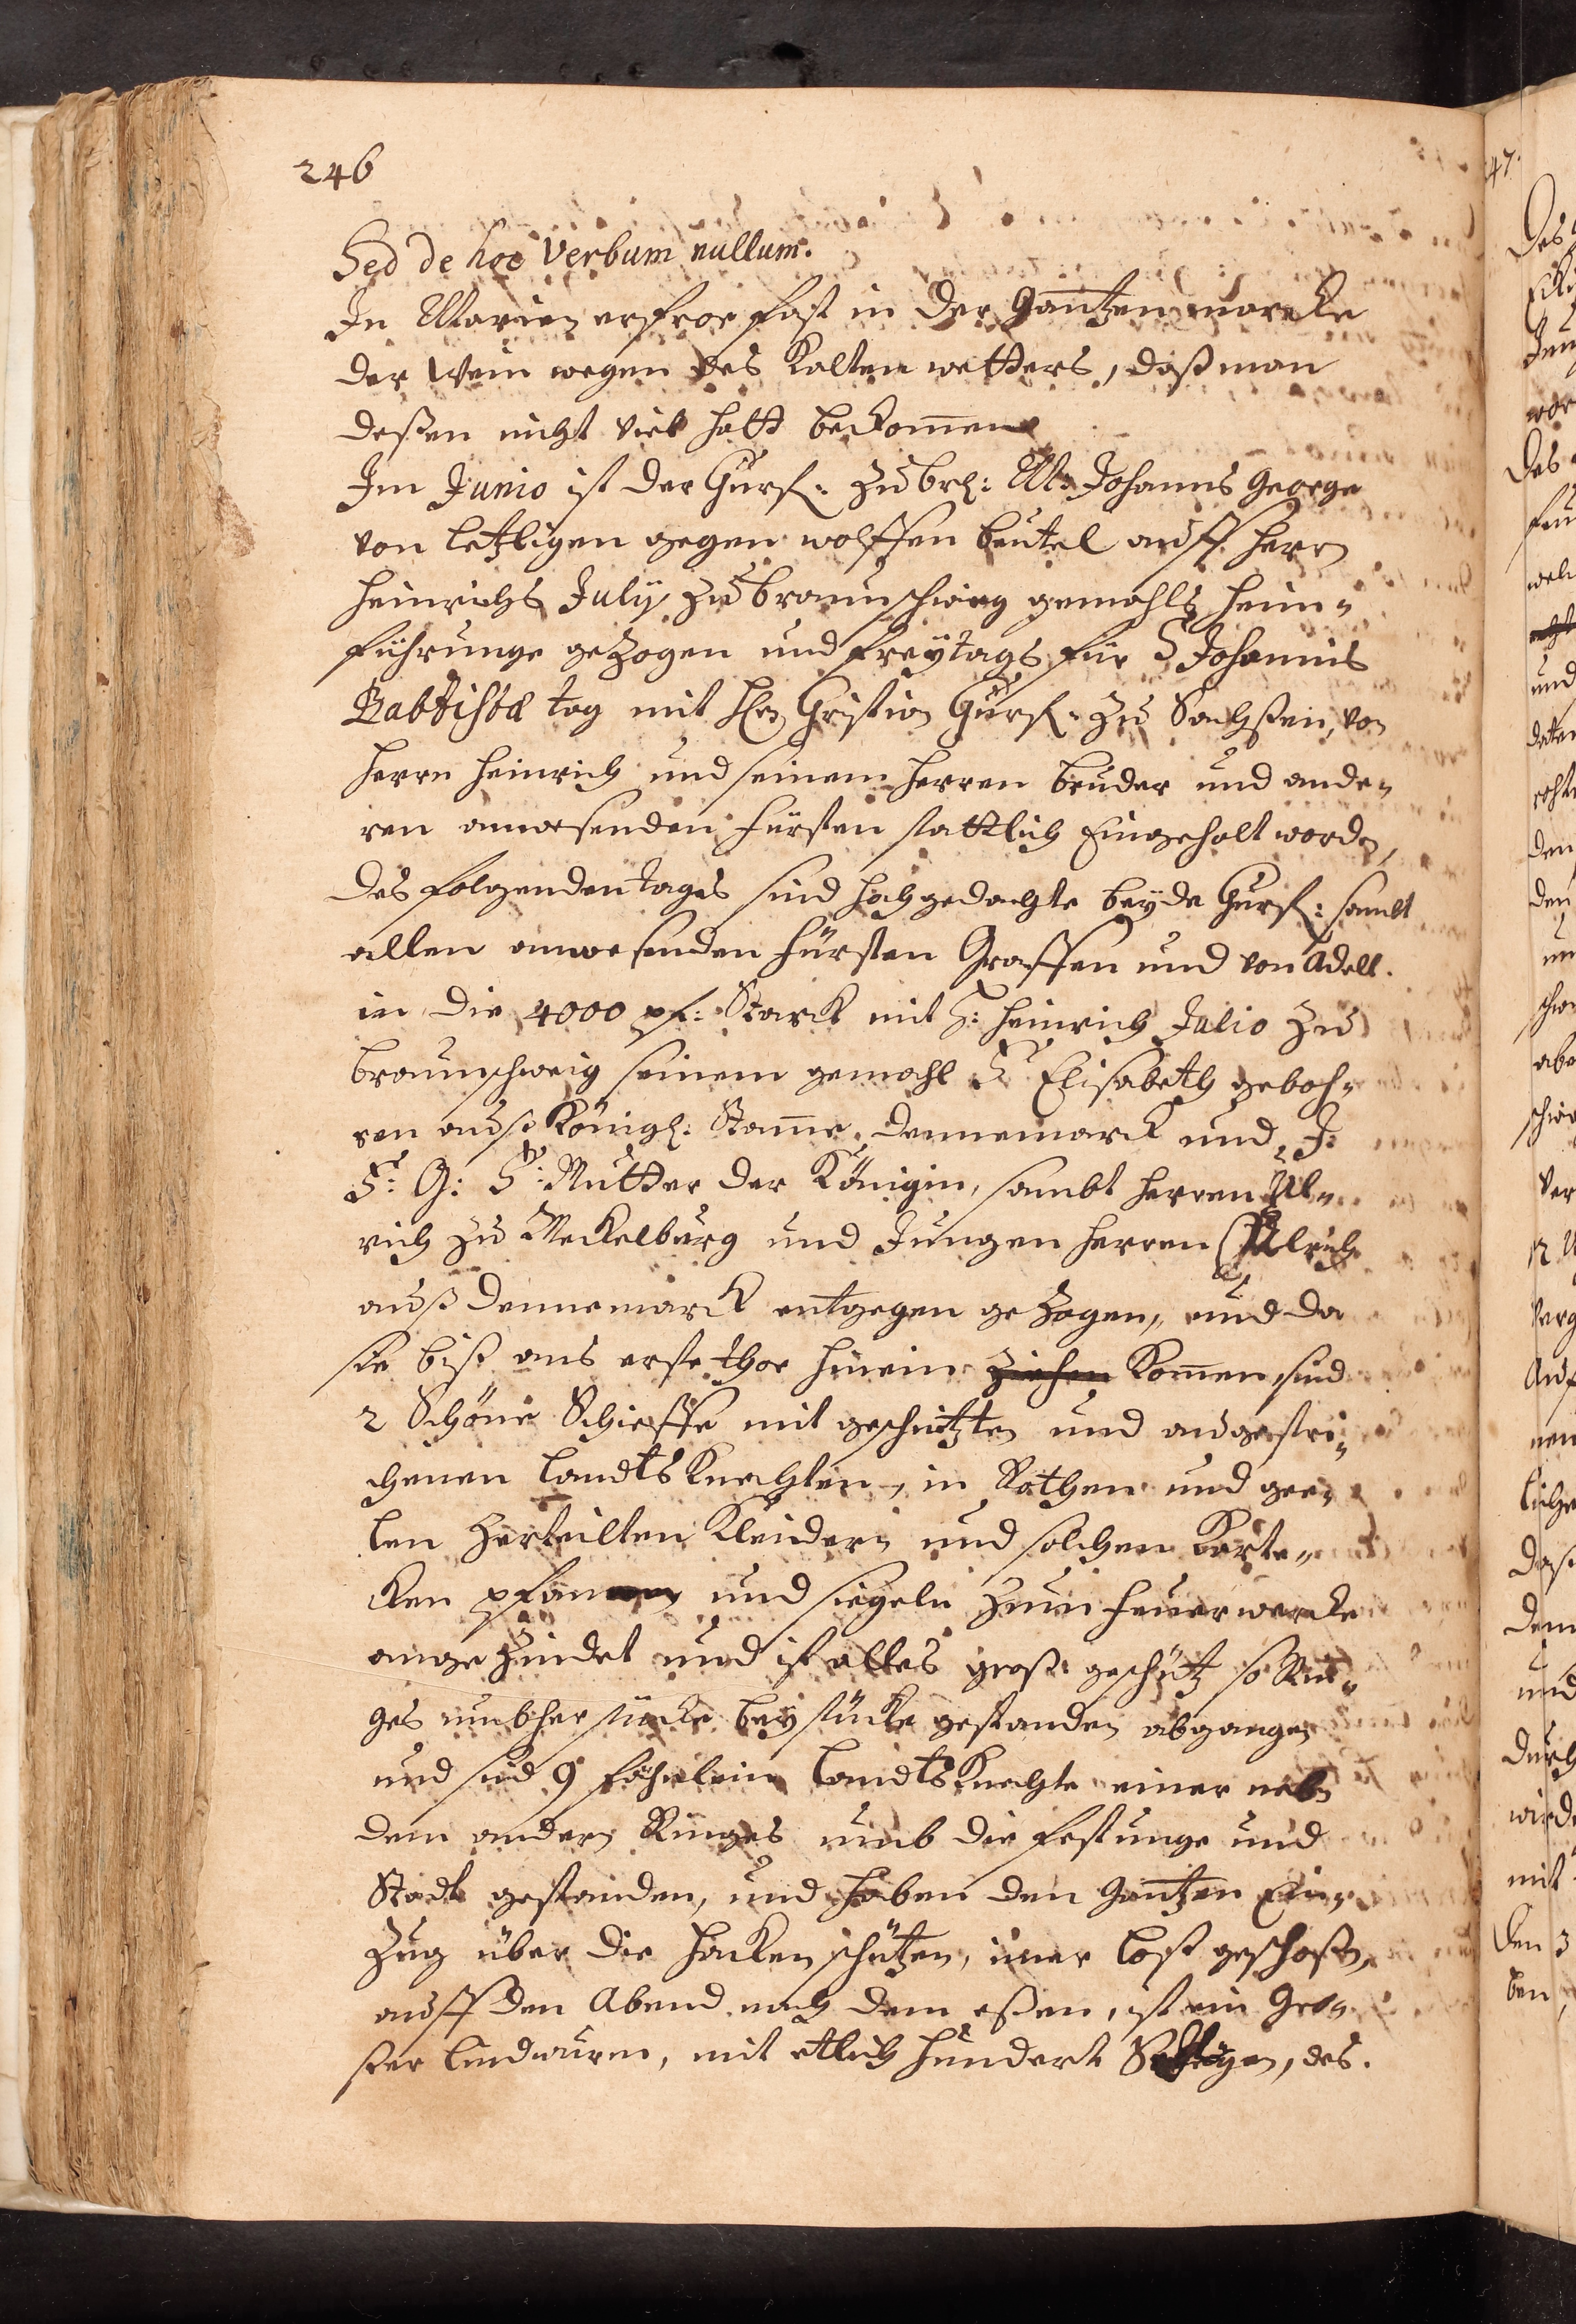 246
Sed de hoc Verbum nullum.
In Marien erfror fast in der gantzen marcke
der Wein wegen des kalten wetters, daß man
deßen nicht viel hatt bekom̄en
Im Junio ist der Churf: zu brh: M: Johanns George
von letzligen gegen wolffen beutel auff herrn
heinrichs July zu braunschwieg gemahls heim„
führunge gezogen und freytags für S Johannis
Babtista tag mit H Christian Churf: zu Sachßen, von
herrn heinrich und seinem herren bruder und ande„
ren anwesenden fürsten stattlich Eingeholt worden,
des folgenden tages sind hochgedachte beyde Churf: sambt
allen anwesenden fürsten Graffen und von Adell.
in die 4000 pf: Starck mit H: heinrich Julio zu
braunschweig seinem gemahl F Elisabeth geboh„
ren auß Königl: Stam̄e Dennemarck und J:
F: G: F: Mutter der Königin, sambt herren Ul„
rich zu Meckelburg und Jungen herren Ulrich
auß dennemarck entgegen gezogen, und da
sie biß ans erste thor hinein ziehen kom̄en, sind
2 Schöne Schieffe mit geschützten und angestri„
chenen landtsknechten, in Rothen und gee„
len zerteilten kleidern und solchen
pfannen und siegeln zum feuerwercke
angezündet und ist alles große geschütz so Rin„
ges umbher stücke bey stücke gestanden abgangen
und sind 9 fähnlein landtsknechte einer neben
dem andern Ringes umb die festunge und
Stadt gestanden, und haben den gantzen Ein„
zug über die hackenschützen, im̄er loß geschoßen,
auff den Abend nach dem eßen, ist ein Gro„
ßer lindwurm, mit etlich hundert, des.